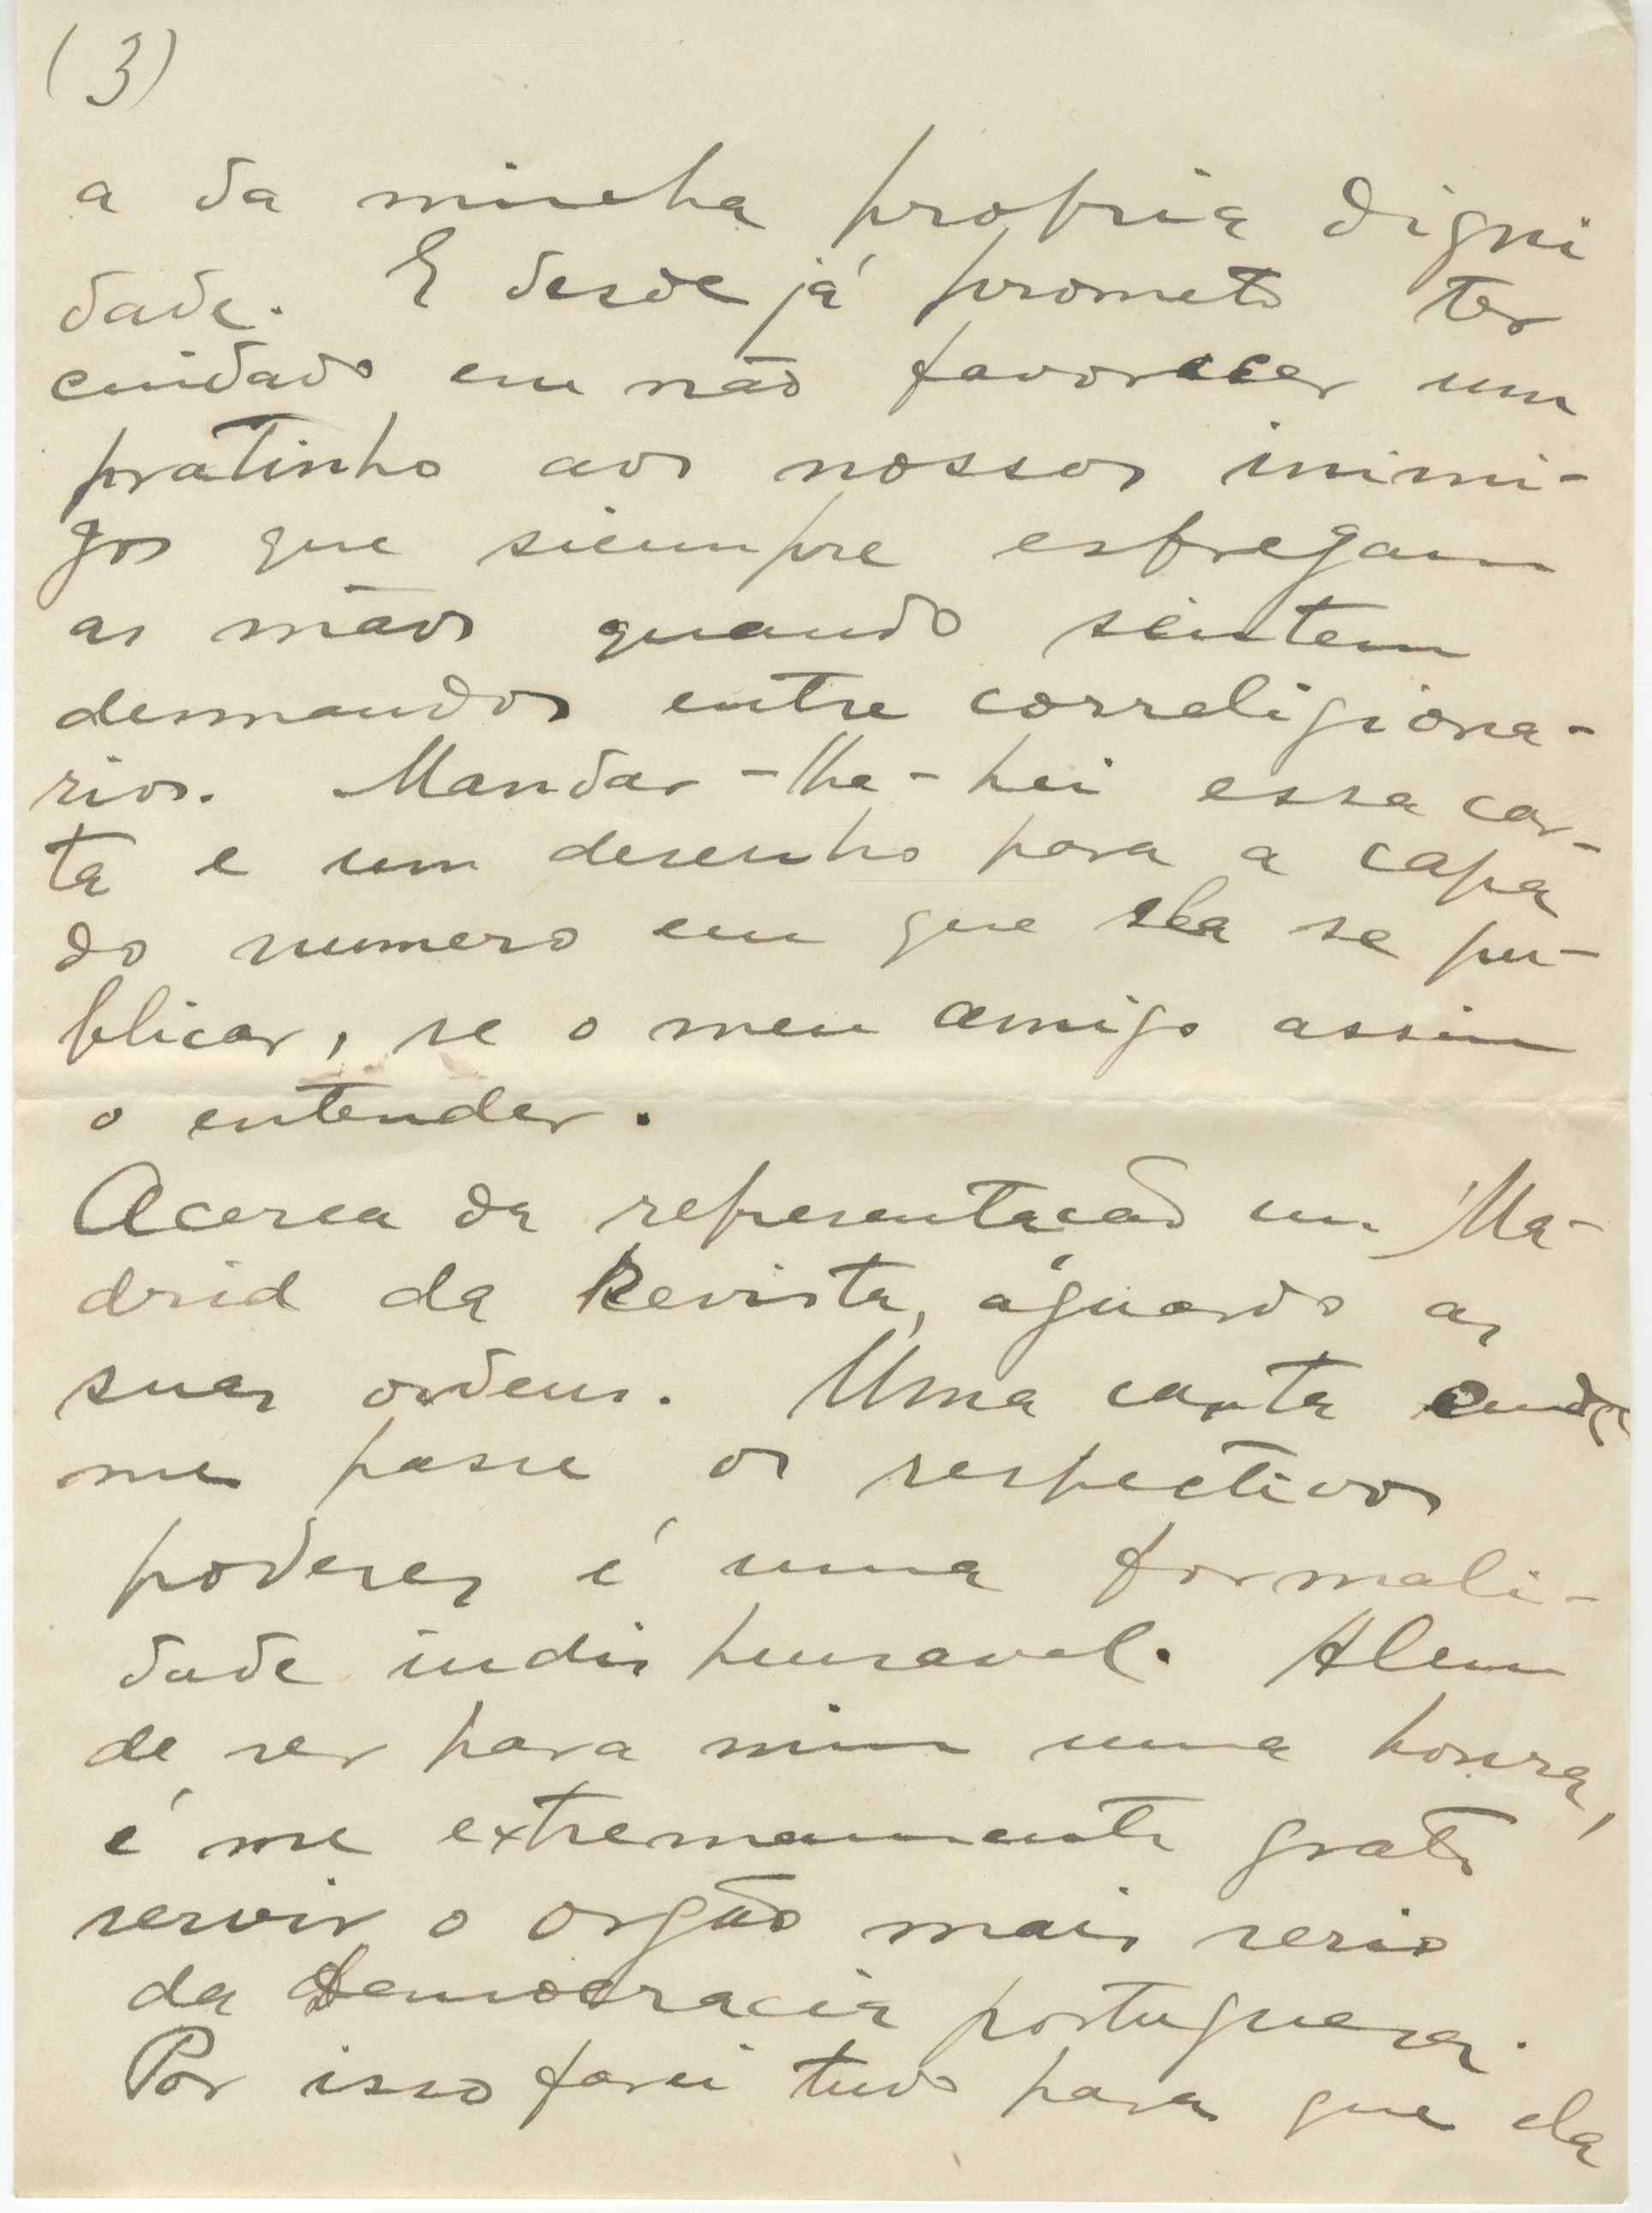 (3)
a da minha propria digni
dade. E desde já prometo ter
cuidado em não favorecer um
pratinho aos nossos inimi-
gos que siempre esfregam
as mãos quando sintem
desmandos entre correligiona-
rios. Mandar-lhe-hei essa car-
ta e um desenho para a capa
do numero em que ela se pu-
blicar, se o meu amigo assim
o entender.
Acerca da representacão em Ma-
drid da Revista, aguardo as
suas ordens. Uma carta onde
me passe os respectivos
poderes é uma formali-
dade indispensavel. Alem
de ser para mim uma honra,
é me extremamente grato
servir o orgão mais serio
da Democracia portuguesa.
Por isso farei tudo para que ela